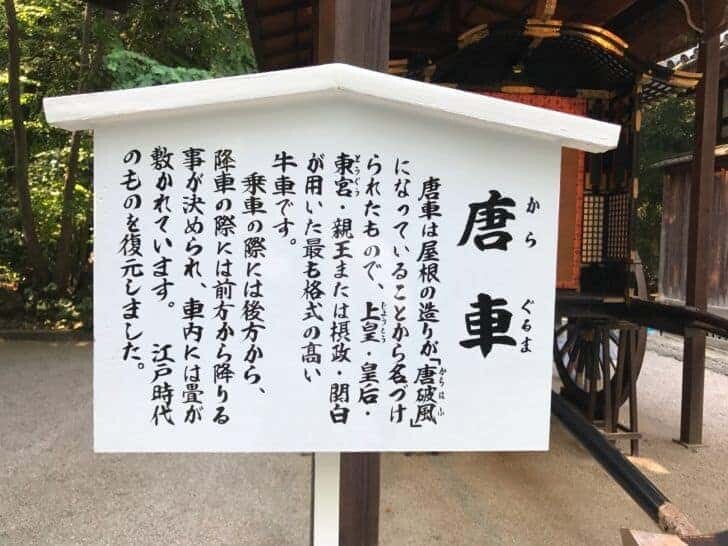 唐車
からぐるま
唐車は屋根の造りが「唐破風」
からはふ
になっていることから名づけ
られたもので、上皇・皇后・
じょうこう
東宮・親王または摂政・関白
とうぐう
が用いた最も格式の高い
牛車です。
乗車の際には後方から、
降車の際には前方から降りる
事が決められ、車内には畳が
敷かれています。 江戸時代
のものを復元しました。